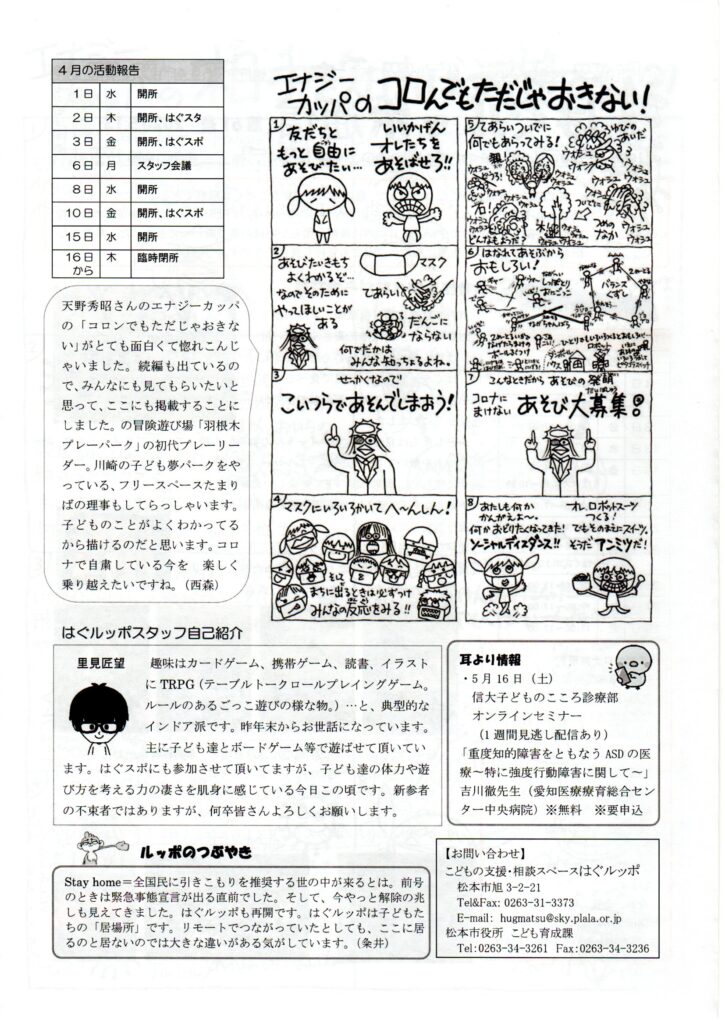 4月の活動報告
1日 水 開所
2日 木 開所、はぐスタ
3日 金 開所、はぐスポ
6日 月 スタッフ会議
8日 水 開所
10日 金 開所、はぐスポ
15日 水 開所
16日から 木 臨時閉所
天野秀昭さんのエナジーカッパ
の「コロンでもただじゃおきな
い」がとても面白くて惚れこんじ
ゃいました。続編も出ているの
で、みんなにも見てもらいたいと
思って、ここにも掲載することに
しました。の冒険遊び場「羽根木
プレーパーク」の初代プレーリー
ダー。川崎の子ども夢パークをや
っている、フリースペースたまり
ばの理事もしてらっしゃいます。
子どものことがよくわかってる
から描けるのだと思います。コロ
ナで自粛している今を 楽しく
乗り越えたいですね。（西森）
エナジー
カッパの コロんでもただじゃおきない！
1
友だちと
もっと自由に
あそびたい…
いいかげん
オレたちを
あそばせろ!!
2
あそびたいきもち
よくわかるぞ…
なのでそのために
やってほしいことが
ある
マスク
てあらい
だんごに
ならない
何でだかは
みんな知っちょるよね。
3
せっかくなので
こいつらであそんでしまおう！
4
マスクにいろいろかいて へ〜んしん！
そして
まちに出るときは必ずつけ
みんなの反応をみる!!
5
てあらいついでに
何でもあらってみる！
ゆびのあいだ
ウォラユ
石！
ついでに
つめの
なか
どんなもようだ？
6
はなれてあそぶから
おもしろい！
バランス
くずし
ダンボール
ハウス
ロボット
7
こんなときだから あそびの発明
コロナに
まけない
あそび大募集！
8
あたしも何か
かんがえよ〜。
何かおどりたくなってきた！
ソーシャルディスダンス!!
オレ、ロボットスーツ
つくる！
でもそのまえにスイーツ。
そうだ アンミツだ！
はぐルッポスタッフ自己紹介
里見匠望 趣味はカードゲーム、携帯ゲーム、読書、イラスト
に TRPG（テーブルトークロールプレイングゲーム。
ルールのあるごっこ遊びの様な物。）…と、典型的な
インドア派です。昨年末からお世話になっています。
主に子ども達とボードゲーム等で遊ばせて頂いてい
ます。はぐスポにも参加させて頂いてますが、子ども達の体力や遊
び方を考える力の凄さを肌身に感じている今日この頃です。新参者
の不束者ではありますが、何卒皆さんよろしくお願いします。
耳より情報
・5月16日（土）
信大子どものこころ診療部
オンラインセミナー
（1週間見逃し配信あり）
「重度知的障害をともなう ASD の医
療～特に強度行動障害に関して～」
吉川徹先生（愛知医療療育総合セン
ター中央病院）※無料 ※要申込
ルッポのつぶやき
Stay home＝全国民に引きこもりを推奨する世の中が来るとは。前号
のときは緊急事態宣言が出る直前でした。そして、今やっと解除の兆
しも見えてきました。はぐルッポも再開です。はぐルッポは子どもた
ちの「居場所」です。リモートでつながっていたとしても、ここに居
るのと居ないのでは大きな違いがある気がしています。（条井）
【お問い合わせ】
こどもの支援・相談スペースはぐルッポ
松本市旭 3-2-21
Tel&Fax: 0263-31-3373
E-mail: hugmatsu@sky.plala.or.jp
松本市役所 こども育成課
Tel:0263-34-3261 Fax:0263-34-3236